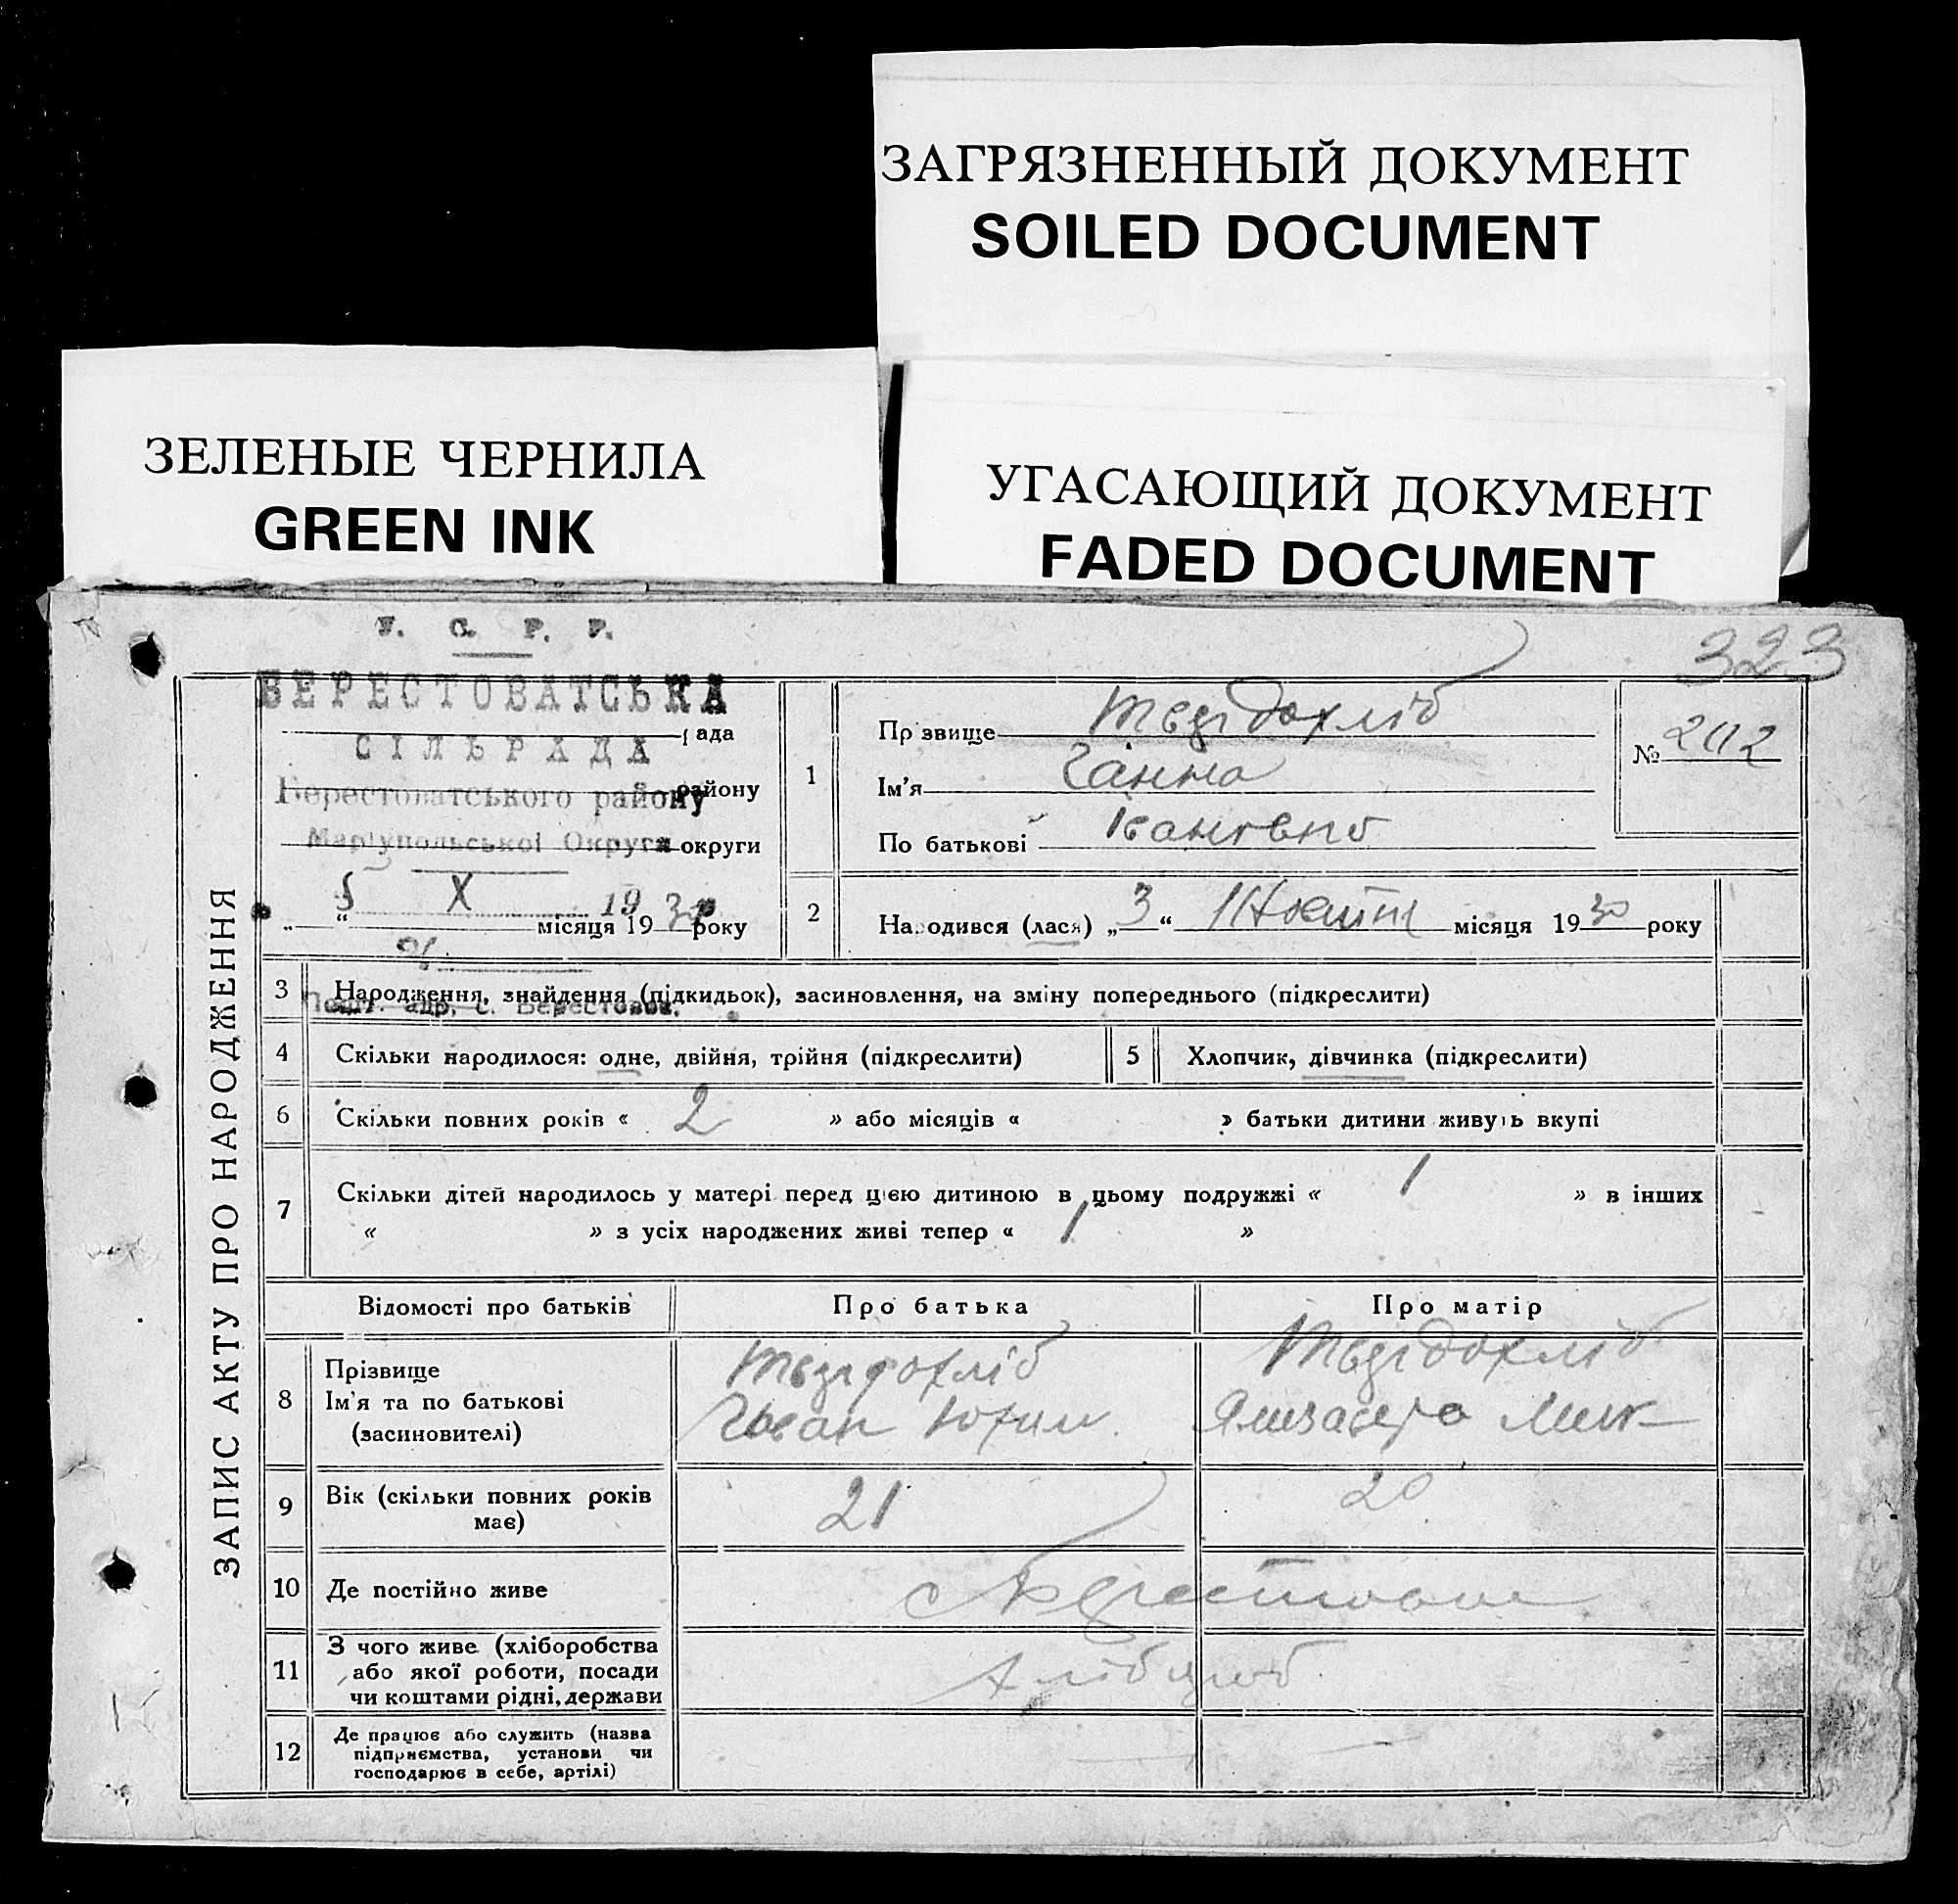 ЗАГРЯЗНЕННЫЙ ДОКУМЕНТ
SOILED DOCUMENT
ЗЕЛЕНЫЕ ЧЕРНИЛА
GREEN INK
УГАСАЮЩИЙ ДОКУМЕНТ
FADED DOCUMENT
323
У. С. Р. Р.
БЕРЕСТОВАТСЬКА
рада
СІЛЬРАДА
Берестоватського району
району
Маріупольської Округи округи
5 X 1930 р
„ “ місяця 19 року
№
Пошт. адр. с. Берестовое.
ЗАПИС АКТУ ПРО НАРОДЖЕННЯ
1
Прізвище Твердохліб
Ім'я Ганна
По батькові Івановна
№ 202
2
Народився (лася) „3“ місяця 1930 року
3 Народження, знайдення (підкидьок), засиновлення, на зміну попереднього (підкреслити)
4 Скільки народилося: одне, двійня, трійня (підкреслити)
5 Хлопчик, дівчинка (підкреслити)
6 Скільки повних років « 2 » або місяців « » батьки дитини живуть вкупі
7 Скільки дітей народилось у матері перед цією дитиною в цьому подружжі « 1 » в інших
« » з усіх народжених живі тепер « 1 »
Відомості про батьків
Про батька
Про матір
8 Прізвище
Ім'я та по батькові
(засиновителі)
Твердохліб
Іван Юхим.
Твердохліб
Мик
9 Вік (скільки повних років
має)
21
20
10 Де постійно живе
с Берестове
11 З чого живе (хліборобства
або якої роботи, посади
чи коштами рідні, держави
хлібороб
12 Де працює або служить (назва
підприємства, установи чи
господарює в себе, артілі)